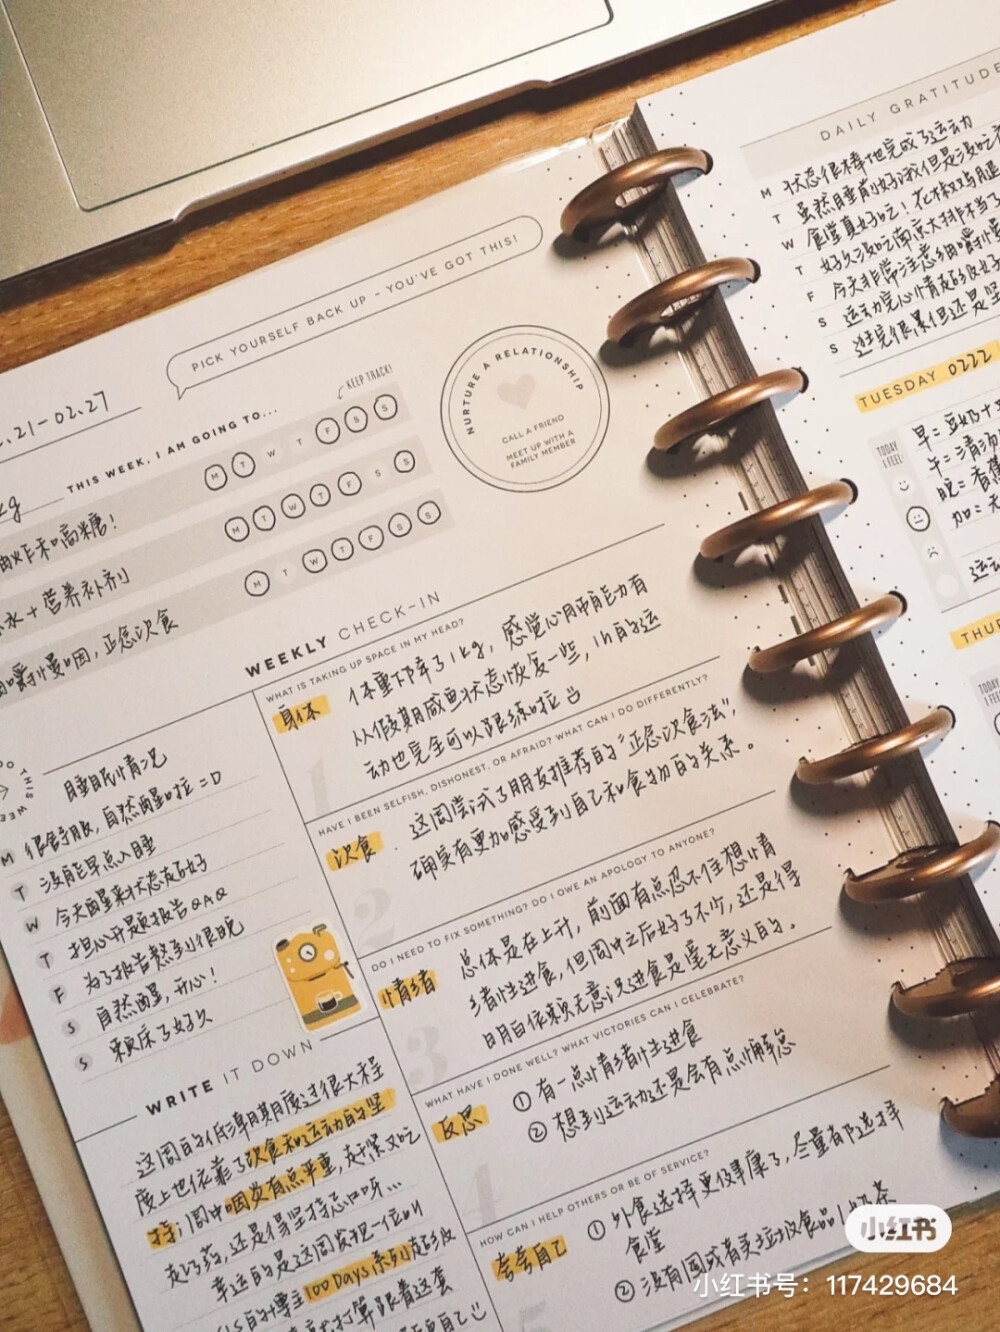 PICK YOURSELF BACK UP - YOU'VE GOT THIS!
.21-02.27
THIS WEEK, I AM GOING TO...
KEEP TRACK!
M T W T F S S
炸和高糖!
M T W T F S S
水+营养补剂
M T W T F S S
嚼慢咽,正念饮食
NURTURE A RELATIONSHIP
CALL A FRIEND
MEET UP WITH A
FAMILY MEMBER
睡眠情况
M 很舒服,自然醒啦=D
T 没能早点入睡
W 今天醒来状态超级好
T 担心开题报告QAQ
F 为了报告熬到很晚
S 自然醒,开心!
S 赖床了好久
WRITE IT DOWN
这周的低潮期度过很大程
度上也依靠了饮食和运动的坚
持;周中咽炎有点严重,赶紧又吃
起了药,还是得坚持忌口呀...
幸运的是这周发现一位叫
的博主100Days系列超级
打算跟着这套
WEEKLY CHECK-IN
WHAT IS TAKING UP SPACE IN MY HEAD?
身体
体重下降了1kg,感觉心肺能力有
从假期咸鱼状态恢复一些,1h的运
动也完全可以跟练啦
HAVE I BEEN SELFISH, DISHONEST, OR AFRAID? WHAT CAN I DO DIFFERENTLY?
饮食
这周尝试了朋友推荐的"正念饮食法",
确实有更加感受到自己和食物的关系。
DO I NEED TO FIX SOMETHING? DO I OWE AN APOLOGY TO ANYONE?
情绪
总体是在上升,前面有点忍不住想情
绪性进食,但周中之后好了不少,还是得
明白依赖无意识进食是毫无意义的。
WHAT HAVE I DONE WELL? WHAT VICTORIES CAN I CELEBRATE?
反思
①有一点情绪性进食
②想到运动还是会有点懈怠
HOW CAN I HELP OTHERS OR BE OF SERVICE?
夸夸自己
①外食选择更健康了,尽量都选择
食堂
②没有囤或者买垃圾食品、奶茶
DAILY GRATITUDE
M 状态很棒地完成了运动
T 虽然睡前好饿但是没吃
W 食堂真好吃!花椒鸡腿
T 好久没吃南京大排档了
F 今天非常注意细嚼慢
S 运动完心情超级好
S 逛完很累但还是坚
TUESDAY 0222
TODAY
I FEEL:
早=豆奶+
午=清汤
晚=香蕉
加=无
运动
THUR
TODAY
小红书
小红书号：117429684